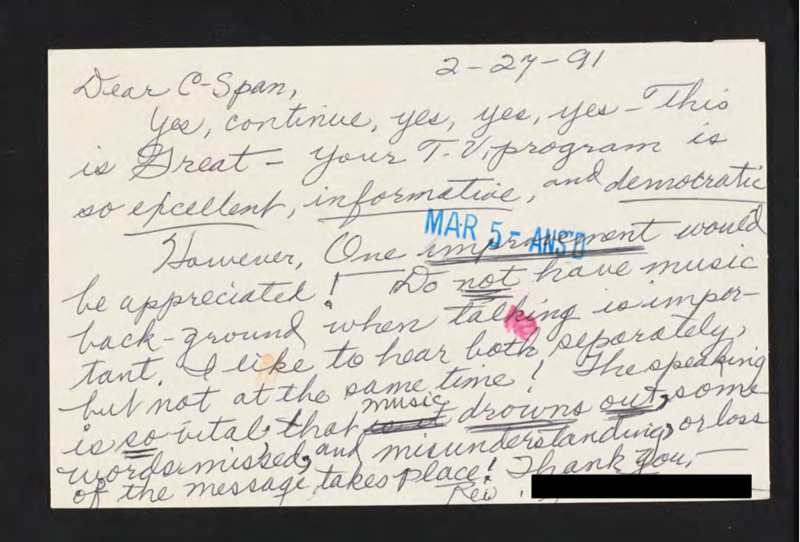 2-27-91
Dear C-Span,
Yes, continue, yes, yes, yes - This
is Great - Your T.V. program is
so excellent, informative, and democratic
MAR 5 - ANS'D
However, One improvement would
be appreciated! Do not have music
back-ground when talking is impor-
tant. I like to hear both, separately,
but not at the same time! The speaking
is so vital; that music drowns out, some
words missed, and misunderstanding, or loss
of the message, takes place! Thank you, -
Rev.